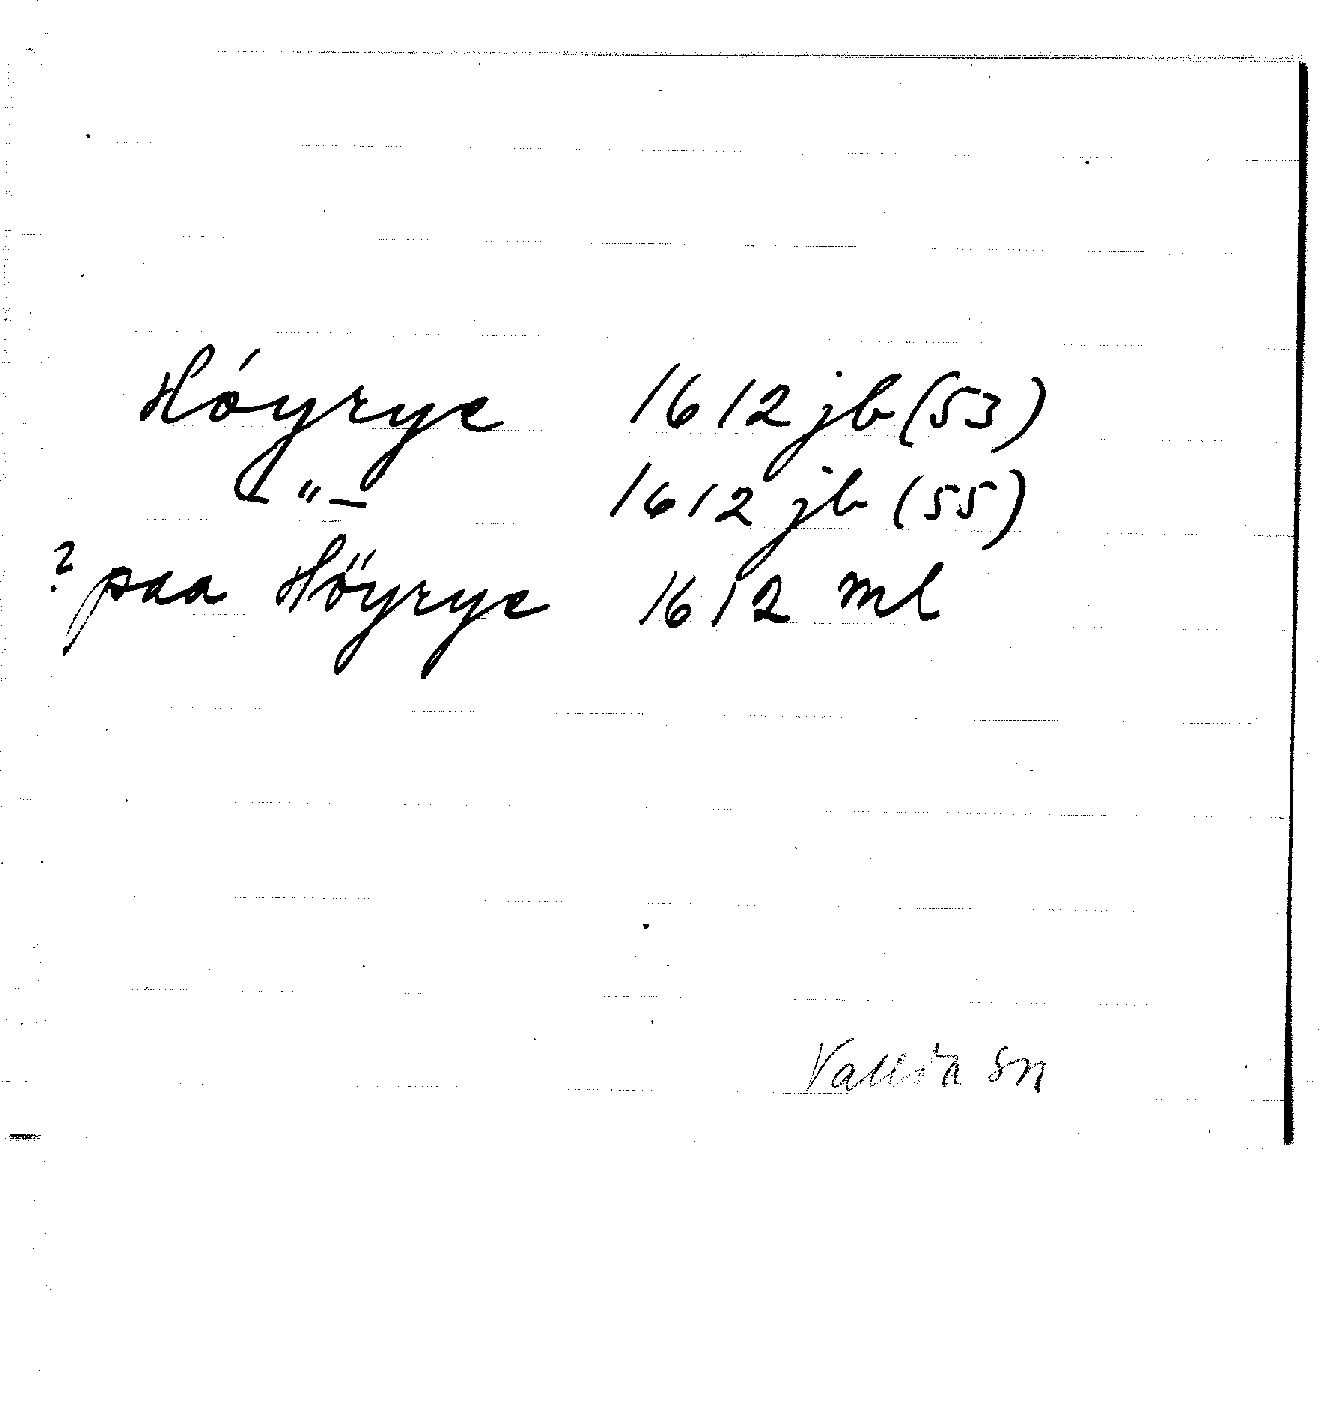 Hóyrye 1612 jb (53)
– " – 1612 jb (55)
? paa Höyrye 1612 ml
Vallda sn